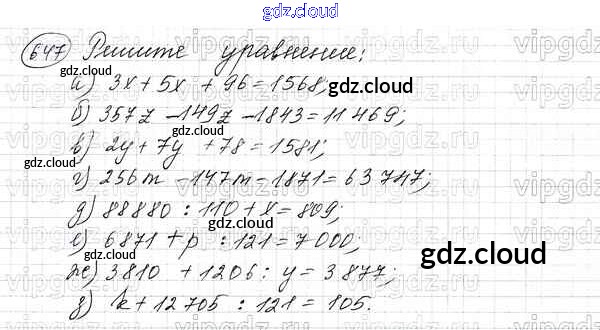 gdz.cloud
647 Решите уравнение:
а) 3x + 5x + 96 = 1568;
б) 357z - 149z - 1843 = 11 469;
в) 2y + 7y + 78 = 1581;
г) 256m - 147m - 1871 = 63 747;
д) 88880 : 110 + x = 809;
е) 6871 + p : 121 = 7000;
ж) 3810 + 1206 : y = 3877;
з) k + 12705 : 121 = 105.
gdz.cloud
gdz.cloud
gdz.cloud
gdz.cloud
gdz.cloud
gdz.cloud
gdz.cloud
gdz.cloud